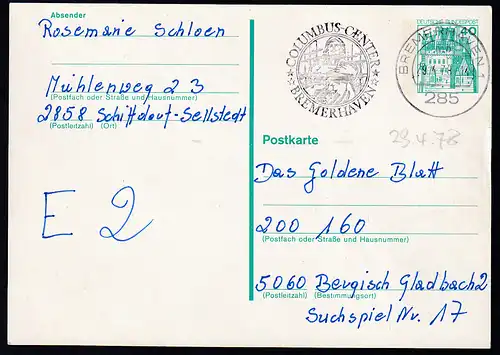 Absender
Rosemarie Schloen
Mühlenweg 23
(Postfach oder Straße und Hausnummer)
2858 Schiffdorf-Sellstedt
(Postleitzahl) (Ort)
E 2
COLUMBUS-CENTER
BREMERHAVEN
DEUTSCHE BUNDESPOST
40
BREMERHAVEN 1
285
23.4.78
Postkarte
Das Goldene Blatt
200 160
(Postfach oder Straße und Hausnummer)
5060 Bergisch Gladbach 2
(Postleitzahl) (Bestimmungsort)
Suchspiel Nr. 17